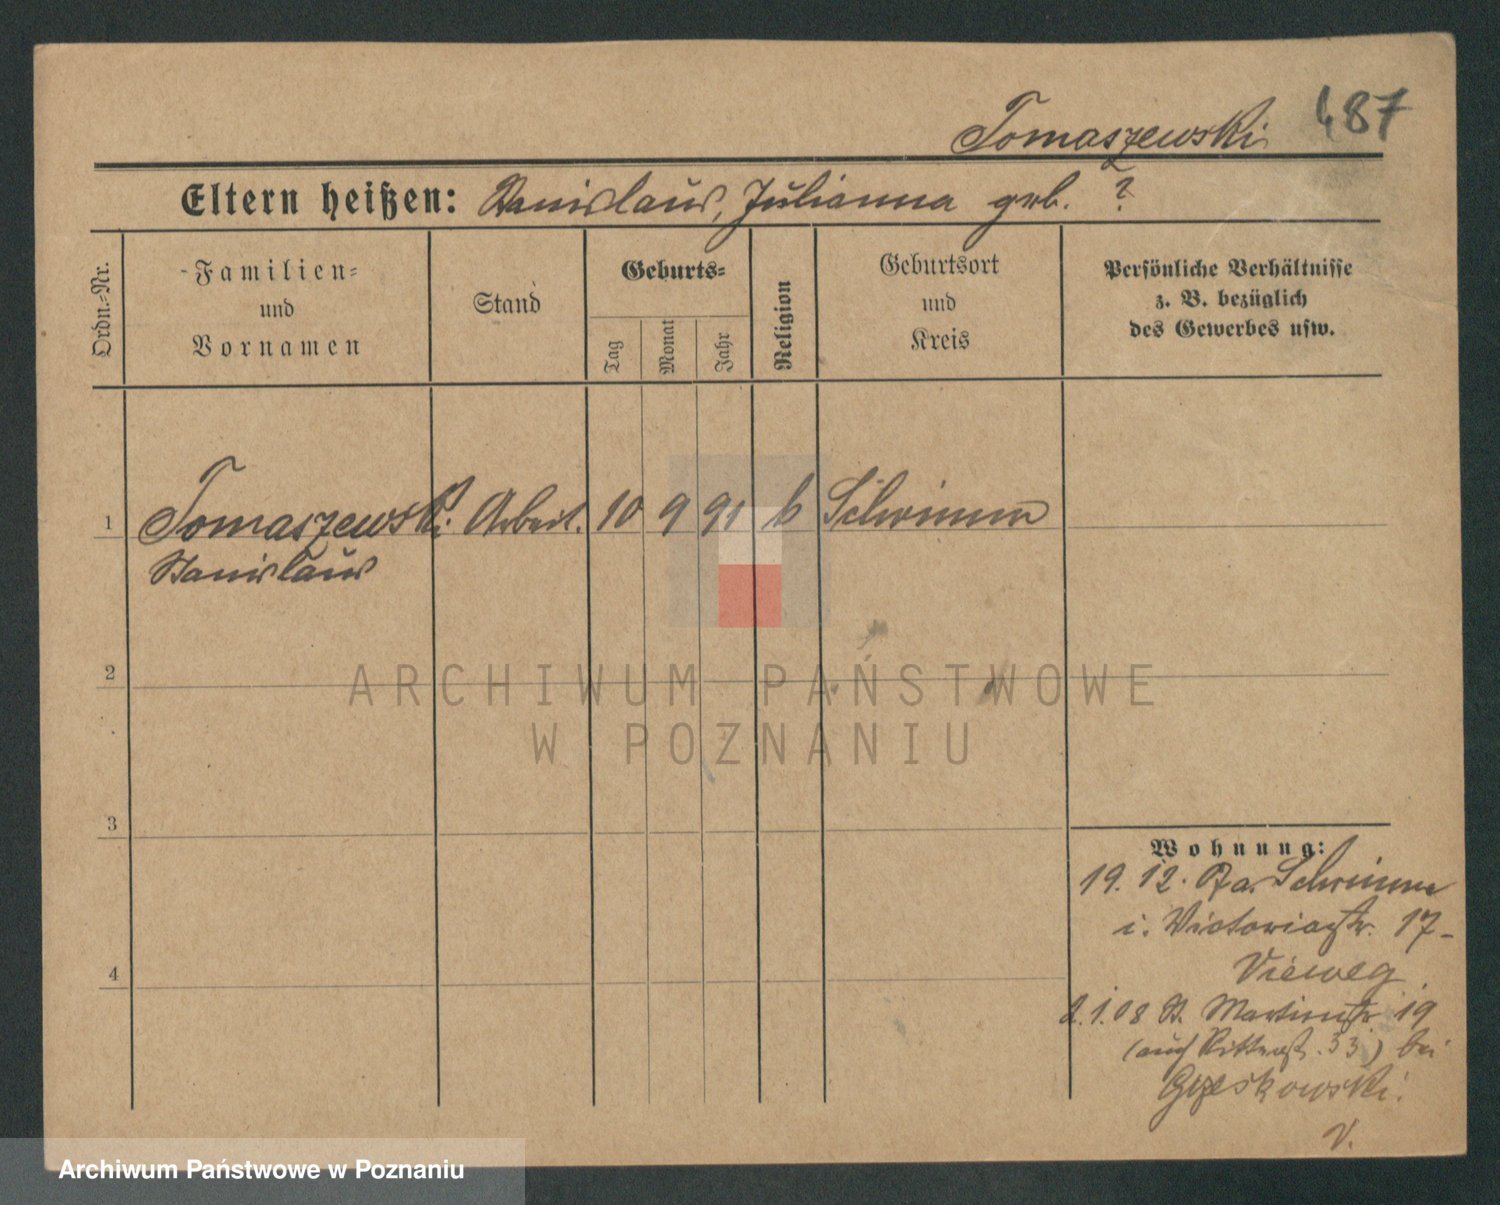 487
Tomaszewski
Eltern heißen: Stanislaus, Julianna geb. ?
Ordn.-Nr.
Familien-
und
Vornamen
Stand
Geburts-
Tag
Monat
Jahr
Religion
Geburtsort
und
Kreis
Persönliche Verhältnisse
z. B. bezüglich
des Gewerbes usw.
1 Tomaszewski Arbeit. 10 9 91 k Schrimm
Stanislaus
2
3
4
Wohnung:
19. 12. Schrimm
i. Victoriastr. 17-
Vieweg
2.1.08 St. Martinstr 19
(auch Ritterstr. 33) bei
Grzeskowski.
V.
ARCHIWUM PAŃSTWOWE
W POZNANIU
Archiwum Państwowe w Poznaniu